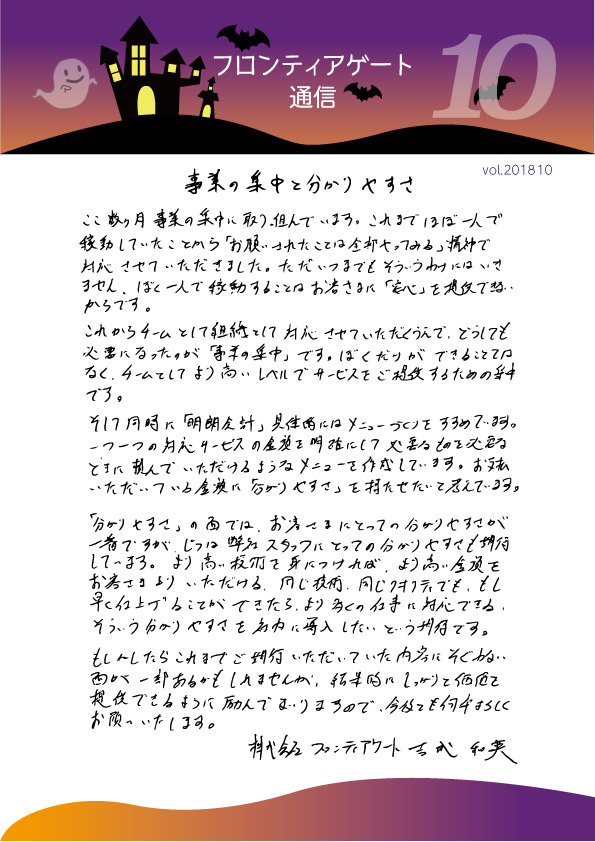 フロンティアゲート
通信
10
vol.201810
事業の集中と分かりやすさ
ここ数ヶ月 事業の集中に取り組んでいます。これまでほぼ一人で
稼動していたことから「お願いされたことは全部やってみる」精神で
対応させていただきました。ただいつまでもそういうわけにはいき
ません、ぼく一人で稼動することはお客さまに「安心」を提供できない
からです。
これからチームとして組織として対応させていただくうえで、どうしても
必要になったのが「事業の集中」です。ぼくだけができることでは
なく、チームとしてより高いレベルでサービスをご提供するための集中
です。
そして同時に「明朗会計」具体的にはメニューづくりをすすめています。
一つ一つの対応サービスの金額を明確にして必要なものを必要な
ときに頼んでいただけるようなメニューを作成しています。お支払
いただいている金額に「分かりやすさ」を持たせたいと考えています。
「分かりやすさ」の面では、お客さまにとっての分かりやすさが
一番ですが、じつは弊社スタッフにとっての分かりやすさも期待
しています。より高い技術を身につければ、より高い金額を
お客さまよりいただける、同じ技術、同じクオリティでも、もし
早く仕上げることができたら、より多くの仕事に対応できる、
そういう分かりやすさを社内に導入したいという期待です。
もしかしたらこれまでご期待いただいていた内容にそぐわない
面が一部あるかもしれませんが、結果的にしっかりと価値を
提供できるように励んでまいりますので、今後とも何卒よろしく
お願いいたします。
株式会社 フロンティアゲート 吉成 和英